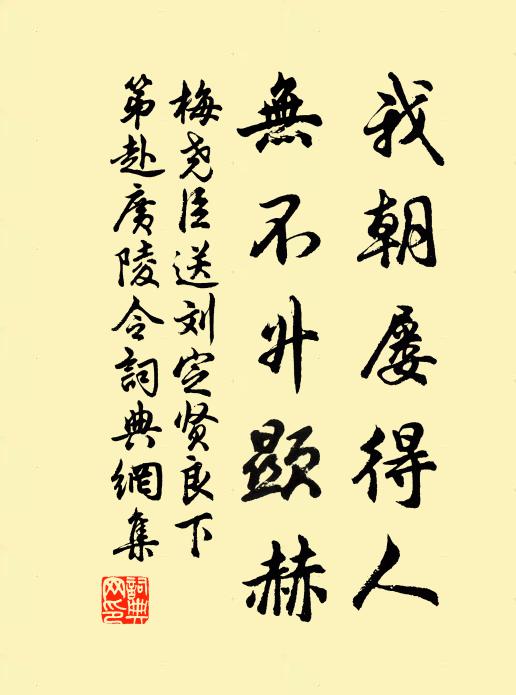 我朝屡得人
無不升顯赫
梅尧臣送刘定贤良下
第赴廣陵令詞典網集
詞典網印